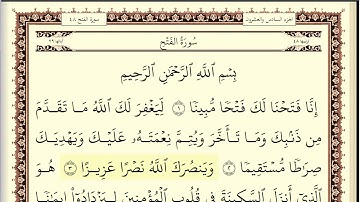 الجزء السادس والعشرون سورة الفتح ٤٨
سُورَةُ الفَتْحِ
بِسْمِ اللَّهِ الرَّحْمَٰنِ الرَّحِيمِ
إِنَّا فَتَحْنَا لَكَ فَتْحًا مُّبِينًا ١ لِّيَغْفِرَ لَكَ اللَّهُ مَا تَقَدَّمَ
مِن ذَنبِكَ وَمَا تَأَخَّرَ وَيُتِمَّ نِعْمَتَهُۥ عَلَيْكَ وَيَهْدِيَكَ
صِرَٰطًا مُّسْتَقِيمًا ٢ وَيَنصُرَكَ اللَّهُ نَصْرًا عَزِيزًا ٣ هُوَ
الَّذِىٓ أَنزَلَ السَّكِينَةَ فِى قُلُوبِ الْمُؤْمِنِينَ لِيَزْدَادُوٓا۟ إِيمَٰنًا